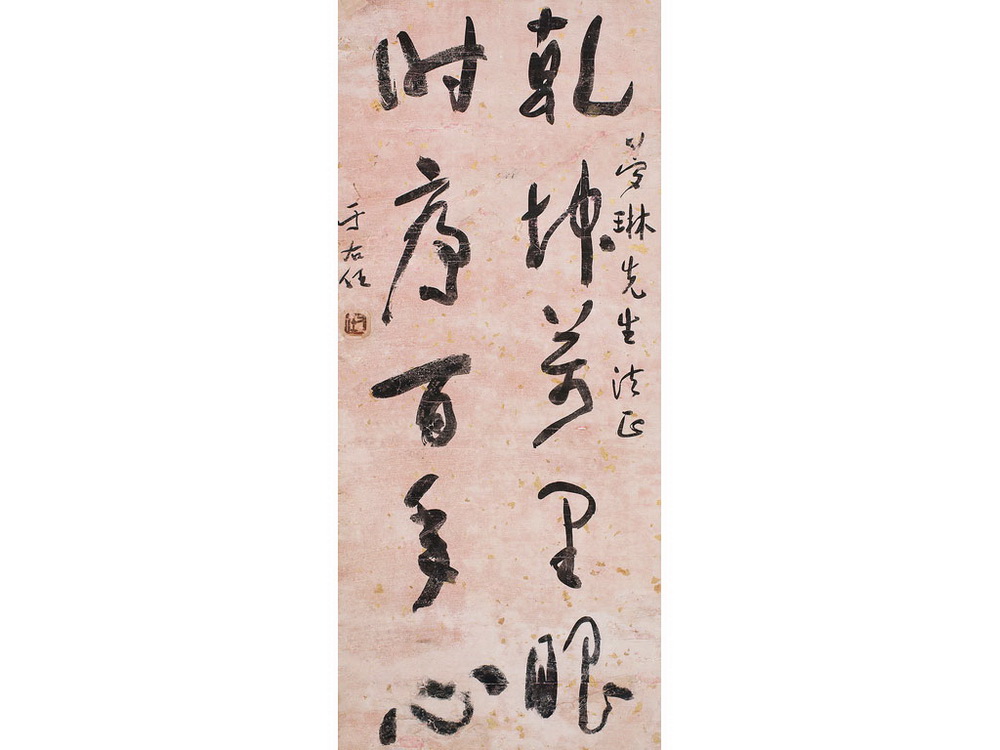 乾坤萬里眼
夢琳先生法正
时序百年心
于右任